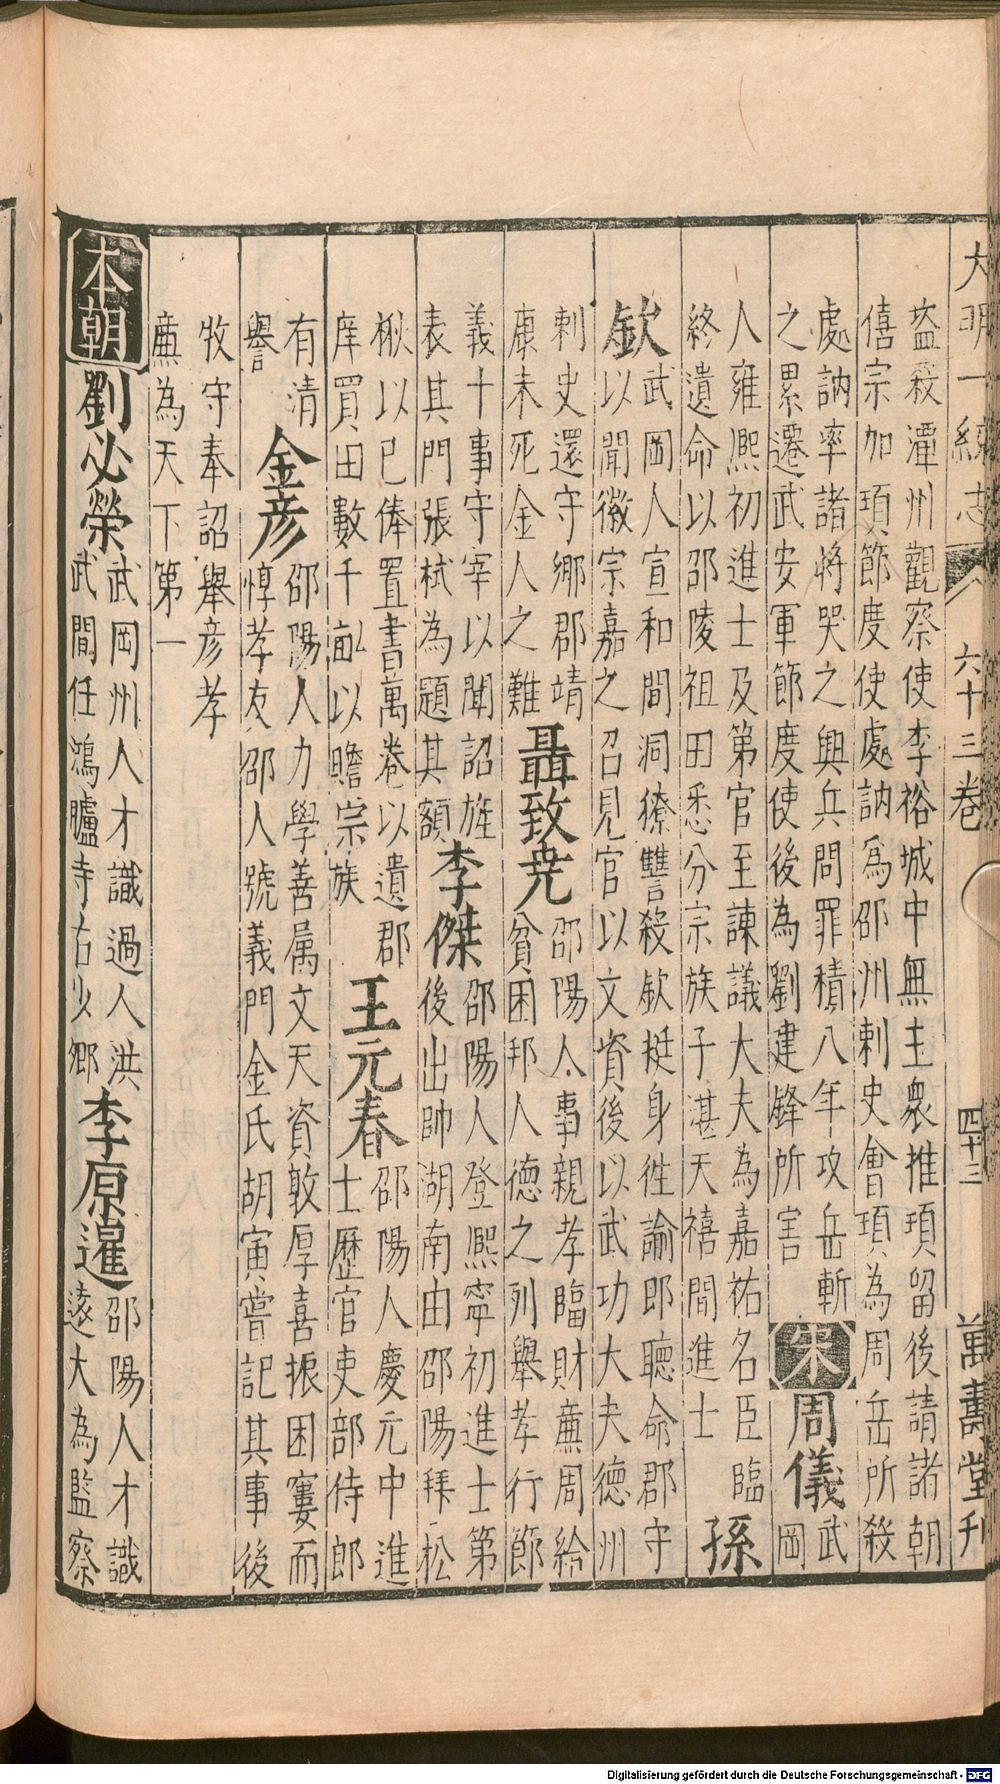 大明一統志 六十三卷 四十三 萬壽堂刊
盜殺潭州觀察使李裕城中無主衆推頊留後請諸朝
僖宗加頊節度使處訥爲邵州刺史會頊為周岳所殺
處訥率諸將哭之與兵問罪積八年攻岳斬
之累遷武安軍節度使後為劉建鋒所害
宋
周儀
武
岡
人雍熈初進士及第官至諫議大夫為嘉祐名臣臨
終遺命以邵陵祖田悉分宗族子湛天禧間進士
孫
欽
武岡人宣和間洞獠讐殺欽挺身徃諭即聽命郡守
以聞徽宗嘉之召見官以文資後以武功大夫德州
刺史還守郷郡靖
康末死金人之難
聶致尭
邵陽人事親孝臨財亷周給
貧困邦人德之列舉孝行節
義十事守宰以聞詔旌
表其門張栻為題其額
李傑
邵陽人登熈寧初進士第
後出帥湖南由邵陽拜松
楸以已俸置書萬卷以遺郡
庠買田數千畝以贍宗族
王元春
邵陽人慶元中進
士歷官吏部侍郎
有清
譽
金彦
邵陽人力學善属文天資敦厚喜振困窶而
惇孝友邵人號義門金氏胡寅嘗記其事後
牧守奉詔舉彦孝
亷為天下第一
本朝
劉必榮
武岡州人才識過人洪
武間任鴻臚寺右少卿
李原暹
邵陽人才識
逺大為監察
Digitalisierung gefördert durch die Deutsche Forschungsgemeinschaft - DFG